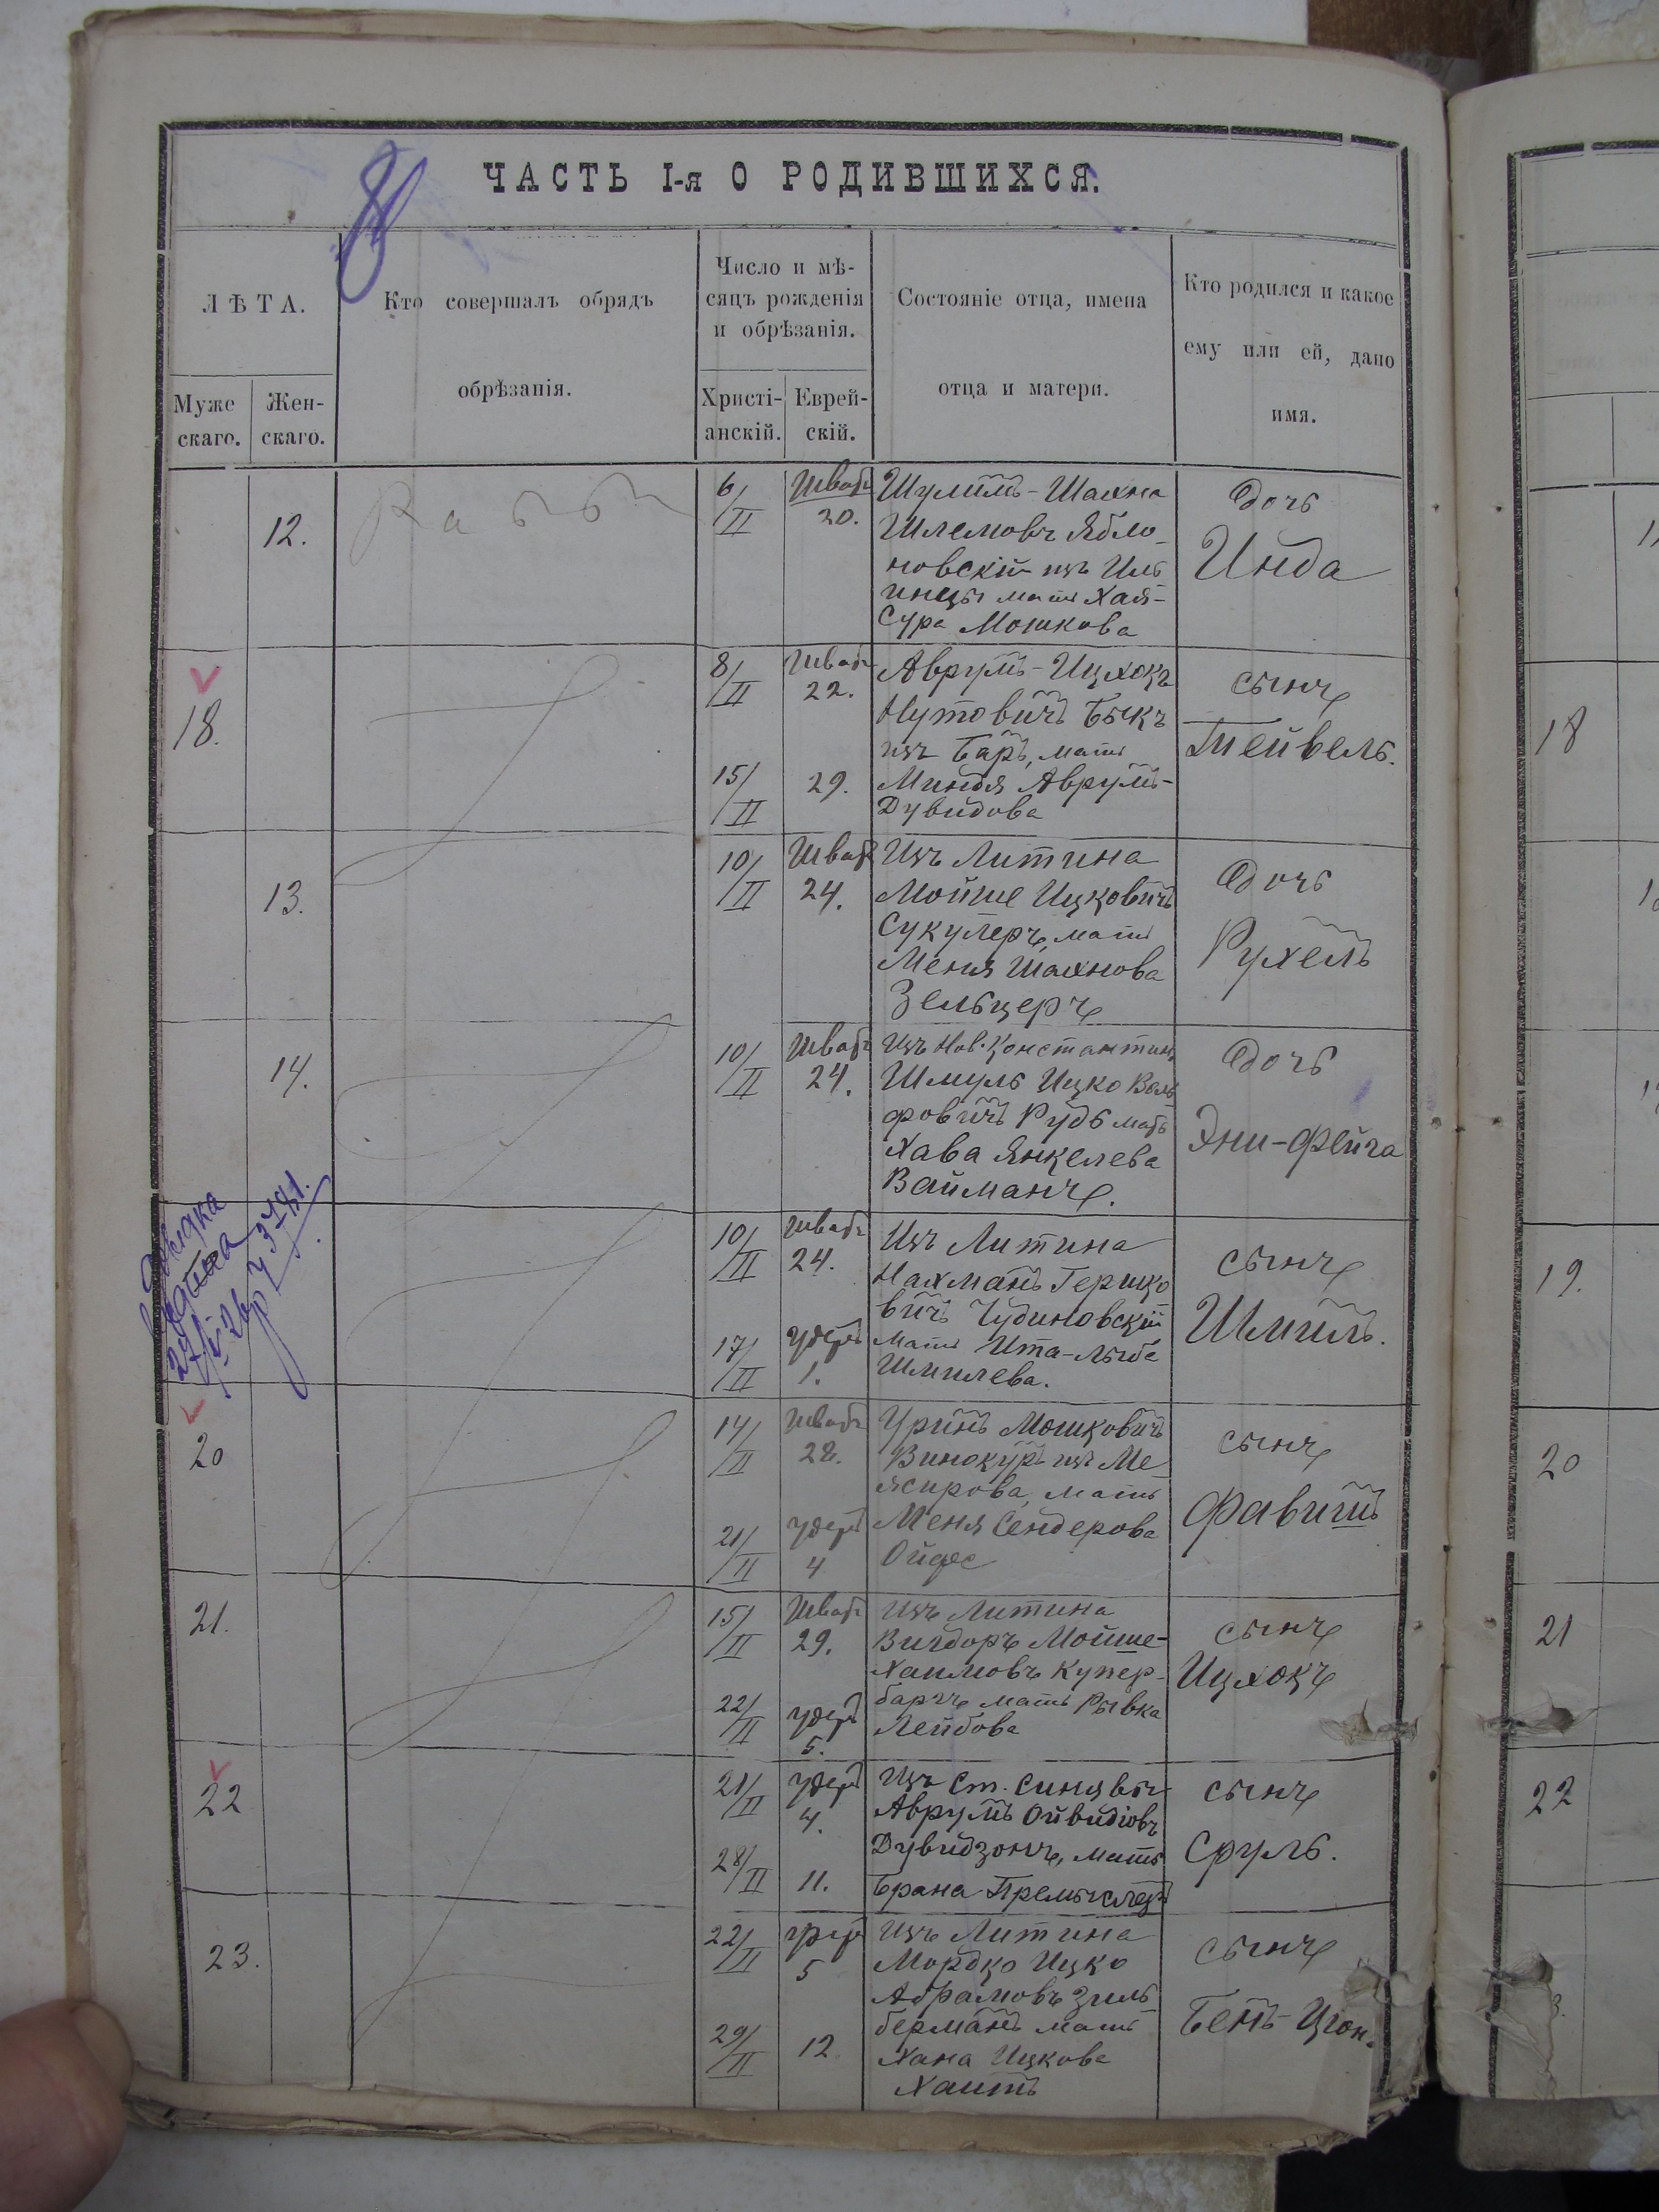 ЧАСТЬ I-я О РОДИВШИХСЯ.
ЛѢТА.
Муже
скаго.
Жен-
скаго.
Кто совершалъ обрядъ
обрѣзанія.
Число и мѣ-
сяцъ рожденія
и обрѣзанія.
Христі-
анскій.
Еврей-
скій.
Состояніе отца, имена
отца и матери.
Кто родился и какое
ему или ей, дано
имя.
12.
6/II
Шватъ
20.
Шулимъ-Шахна
Шлемовъ Ябло-
новскій изъ Иль
инцы мать Хая-
Сура Мошкова
Дочь
Инда
18.
8/II
Шватъ
22.
15/II
29.
Аврумъ-Ицхокъ
Нутовичъ Быкъ
изъ Баръ, мать
Миндя Аврумъ-
Дувидова
сынъ
Тейвель.
13.
10/II
Шватъ
24.
Изъ Литина
Мойше Ицковичъ
Сукулеръ, мать
Меня Шахнова
Зельцеръ
Дочь
Рухель
14.
10/II
Шватъ
24.
Изъ Нов. Константин
Шмуль Ицко Воль
фовичъ Рудь мать
Хава Янкелева
Вайманъ.
Дочь
Эни-Фейга
10/II
Шватъ
24.
17/II
1.
Изъ Литина
Нахманъ Гершко
вичъ Чудиновскій
мать Ита-Лыба
Шмилева.
сынъ
Шмиль.
20
14/II
Шватъ
28.
21/II
4
Уринъ Мошковичъ
Винокуръ изъ Ме
жирова, мать
Меня Сендерова
Ойфе
сынъ
Фавишъ
21.
15/II
Шватъ
29.
22/II
5.
Изъ Литина
Вигдоръ Мойше-
Хаимовъ Купер-
баргъ мать Рывка
Лейбова
сынъ
Ицхокъ
22
21/II
4.
28/II
11.
Изъ Ст. Синявы
Аврумъ Ойвидіовъ
Дувидзонъ, мать
Брана
сынъ
Сруль.
23.
22/II
5
29/II
12
Изъ Литина
Мордко Ицко
Абрамовъ Зиль
берманъ мать
Хана Ицкова
Хаитъ
сынъ
Бенъ-Ціон.
18
19.
20
21
22